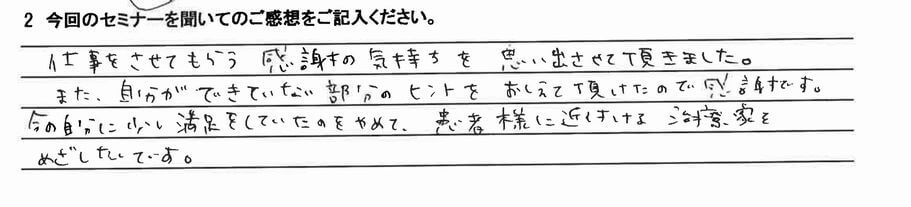 2 今回のセミナーを聞いてのご感想をご記入ください。
仕事をさせてもらう 感謝の気持ちを 思い出させて頂きました。
また、自分ができていない部分のヒントを おしえて頂けたので感謝です。
今の自分に少し満足をしていたのをやめて、患者様に近ずける 治療家を
めざしたいです。